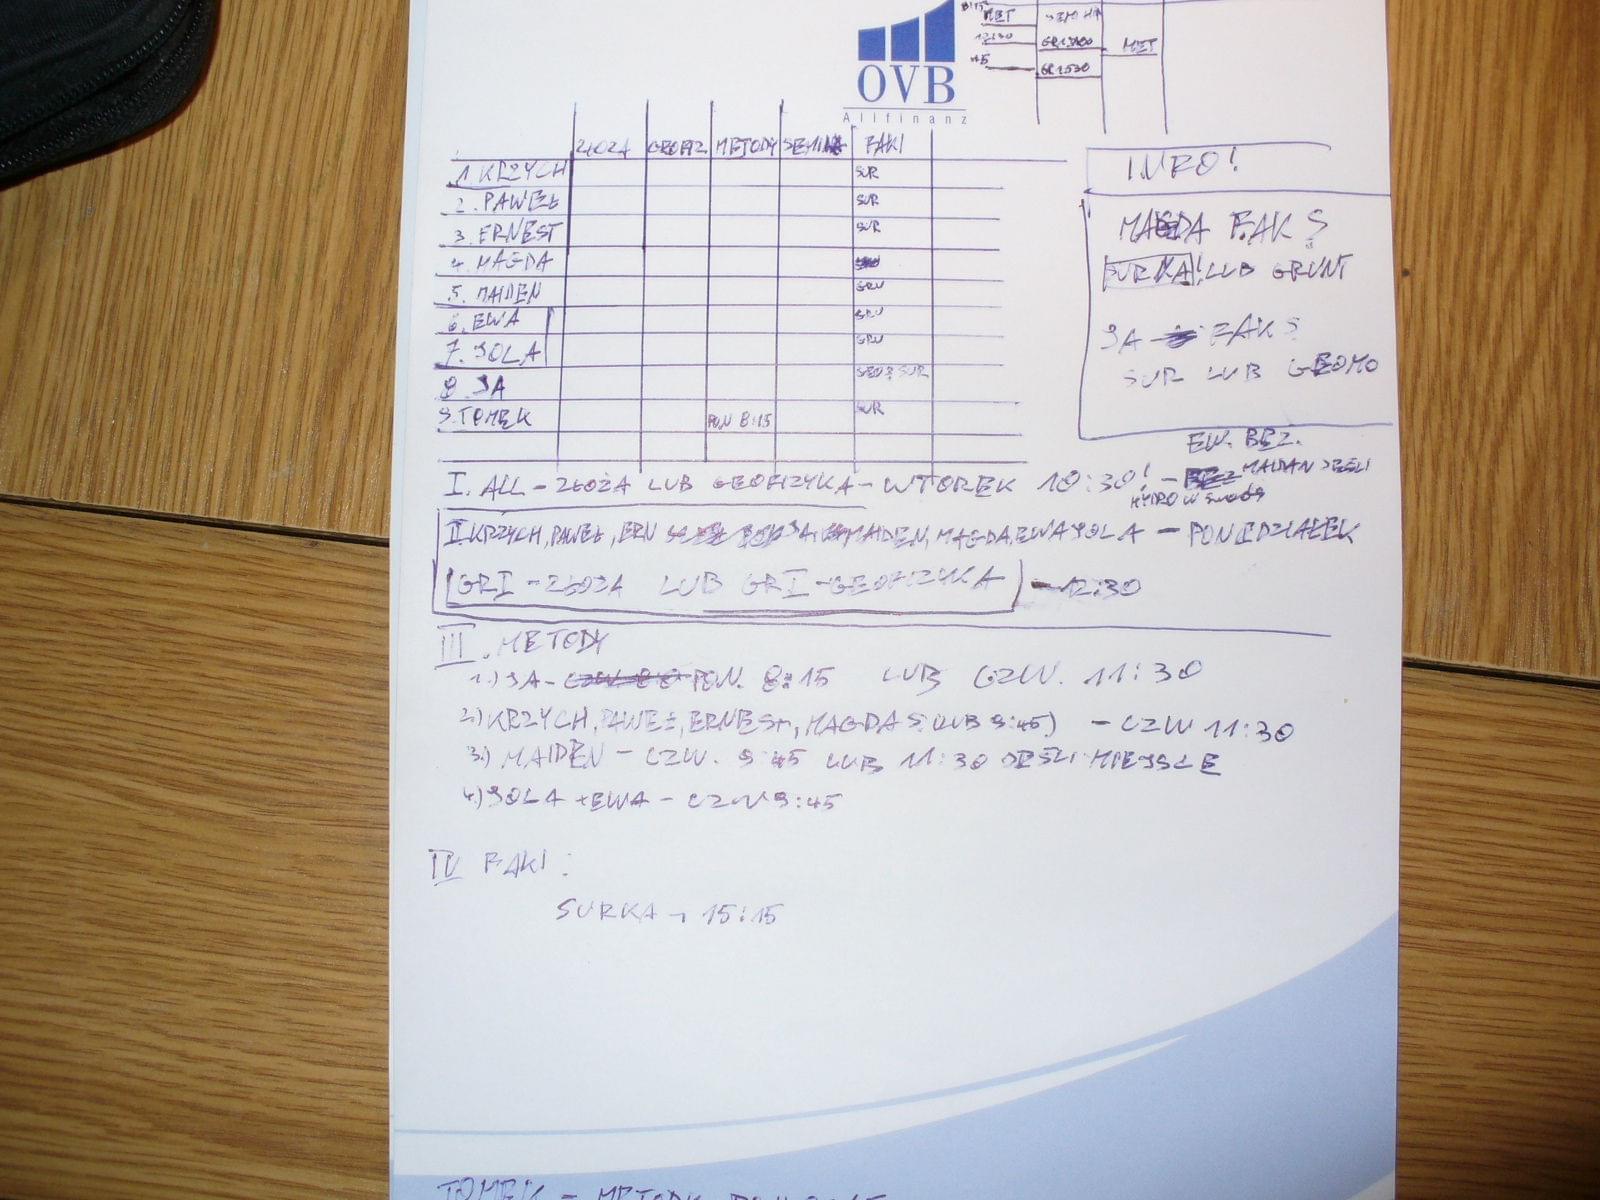 OVB
Allfinanz
8:15 MET SEM HA
12:30 MET
GR1 530
ZŁOŻA GEOFIZ METODY FAKI
1. KRZYCH SUR
2. PAWEŁ SUR
3. ERNEST SUR
4. MAGDA
5. MAIDEN GRU
6. EWA GRU
7. JOLA GRU
8. JA GEO? SUR
9. TOMEK PON 8:15 SUR
INFO!
MAGDA FAK S
SURKA! LUB GRUNT
JA FAK S
SUR LUB GEOMO
EW. BEZ.
I. ALL - ZŁOŻA LUB GEOFIZYKA - WTOREK 10:30! - MAIDAN JEŚLI
HYDRO W ŚRODĘ
II KRZYCH, PAWEŁ, ERN JA MAIDEN, MAGDA, EWA JOLA - PONIEDZIAŁEK
(GRI - ZŁOŻA LUB GRI - GEOFIZYKA) - 12:30
III. METODY
1.) JA - PON. 8:15 LUB CZW. 11:30
2.) KRZYCH, PAWEŁ, ERNEST, MAGDA S (LUB 9:45) - CZW 11:30
3.) MAIDEN - CZW. 9:45 LUB 11:30 JEŚLI MIEJSCE
4.) JOLA + EWA - CZW 9:45
IV FAKI:
SURKA - 15:15
TOMEK - METODY PON 8:15